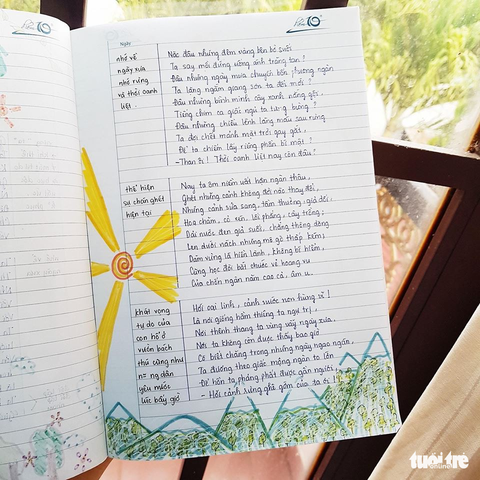 Ngày
nhớ về
ngày xưa
nhớ rừng
và thời oanh
liệt
Nào đâu những đêm vàng bên bờ suối
Ta say mồi đứng uống ánh trăng tan?
Đâu những ngày mưa chuyển bốn phương ngàn
Ta lặng ngắm giang sơn ta đổi mới?
Đâu những bình minh cây xanh nắng gội,
Tiếng chim ca giấc ngủ ta tưng bừng?
Đâu những chiều lênh láng máu sau rừng
Ta đợi chết mảnh mặt trời gay gắt,
Để ta chiếm lấy riêng phần bí mật?
-Than ôi! Thời oanh liệt nay còn đâu?
thể hiện
sự chán ghét
hiện tại
Nay ta ôm niềm uất hận ngàn thâu,
Ghét những cảnh không đời nào thay đổi,
Những cảnh sửa sang, tầm thường, giả dối,
Hoa chăm, cỏ xén, lối phẳng, cây trồng;
Dải nước đen giả suối, chẳng thông dòng
Len dưới nách những mô gò thấp kém;
Dăm vừng lá hiền lành, không bí hiểm,
Cũng học đòi bắt chước vẻ hoang vu
Của chốn ngàn năm cao cả, âm u.
khát vọng
tự do của
con hổ ở
vườn bách
thú cũng như
n= ng dân
yêu nước
lúc bấy giờ
Hỡi oai linh, cảnh nước non hùng vĩ!
Là nơi giống hầm thiêng ta ngự trị,
Nơi thênh thang ta vùng vẫy ngày xưa
Nơi ta không còn được thấy bao giờ
Có biết chăng trong những ngày ngao ngán,
Ta đương theo giấc mộng ngàn to lớn
Để hồn ta phảng phất được gần ngươi,
- Hỡi cảnh rừng ghê gớm của ta ơi!
tuổi trẻ
online